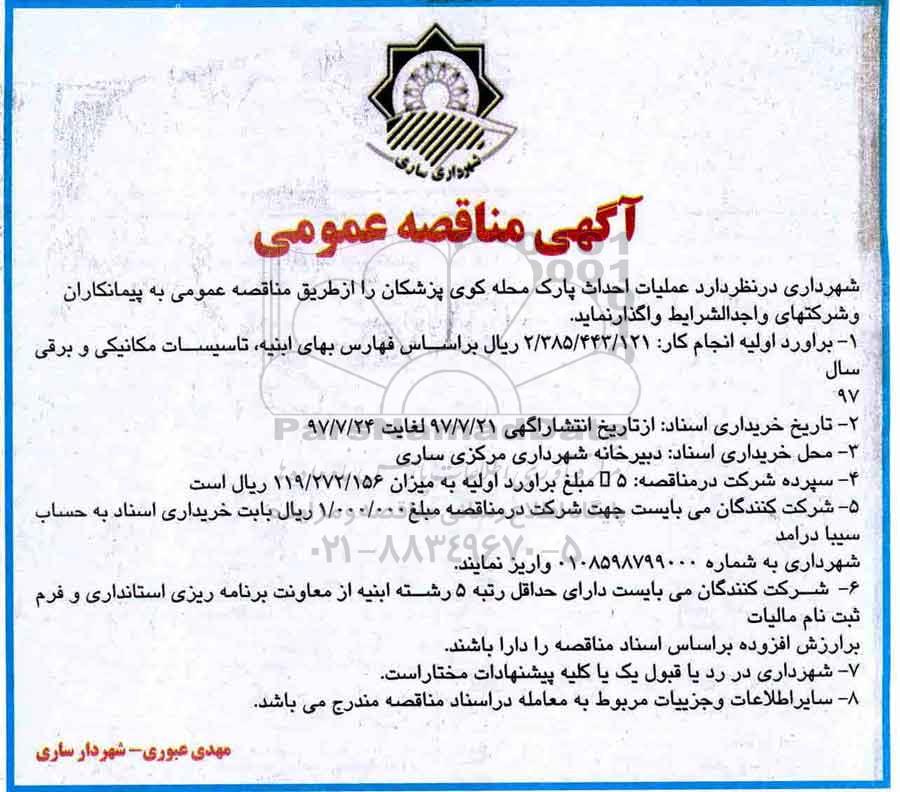 شهرداری ساری
آگهی مناقصه عمومی
شهرداری درنظردارد عملیات احداث پارک محله کوی پزشکان را ازطریق مناقصه عمومی به پیمانکاران
وشرکتهای واجدالشرایط واگذارنماید.
۱- براورد اولیه انجام کار: ۲/۳۸۵/۴۴۳/۱۲۱ ریال براساس فهارس بهای ابنیه، تاسیسات مکانیکی و برقی
سال
۹۷
۲- تاریخ خریداری اسناد: ازتاریخ انتشاراگهی ۹۷/۷/۲۱ لغایت ۹۷/۷/۲۴
ParsNamadData
۳- محل خریداری اسناد: دبیرخانه شهرداری مرکزی ساری
۴- سپرده شرکت درمناقصه: ۵ مبلغ براورد اولیه به میزان ۱۱۹/۲۷۲/۱۵۶ ریال است
۵- شرکت کنندگان می بایست جهت شرکت درمناقصه مبلغ۱/۰۰۰/۰۰۰ ریال بابت خریداری اسناد به حساب
سیبا درامد
۰۲۱-۸۸۳۴۹۶۷۰-۵
شهرداری به شماره ۰۱۰۸۵۹۸۷۹۹۰۰۰ واریز نمایند.
۶- شرکت کنندگان می بایست دارای حداقل رتبه ۵ رشته ابنیه از معاونت برنامه ریزی استانداری و فرم
ثبت نام مالیات
برارزش افزوده براساس اسناد مناقصه را دارا باشند.
۷- شهرداری در رد یا قبول یک یا کلیه پیشنهادات مختاراست.
۸- سایراطلاعات وجزییات مربوط به معامله دراسناد مناقصه مندرج می باشد.
مهدی عبوری- شهردار ساری